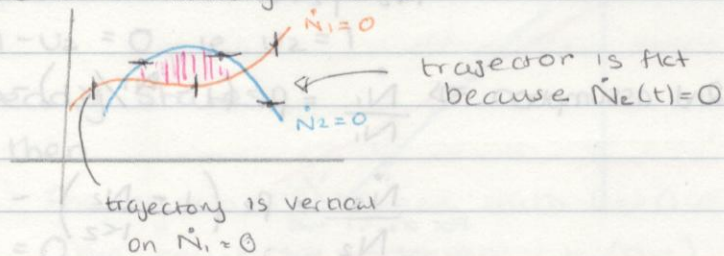 Ṅ₁=0
trajector is flat
because Ṅ₂(t)=0
Ṅ₂=0
trajectory is vertical
on Ṅ₁=0